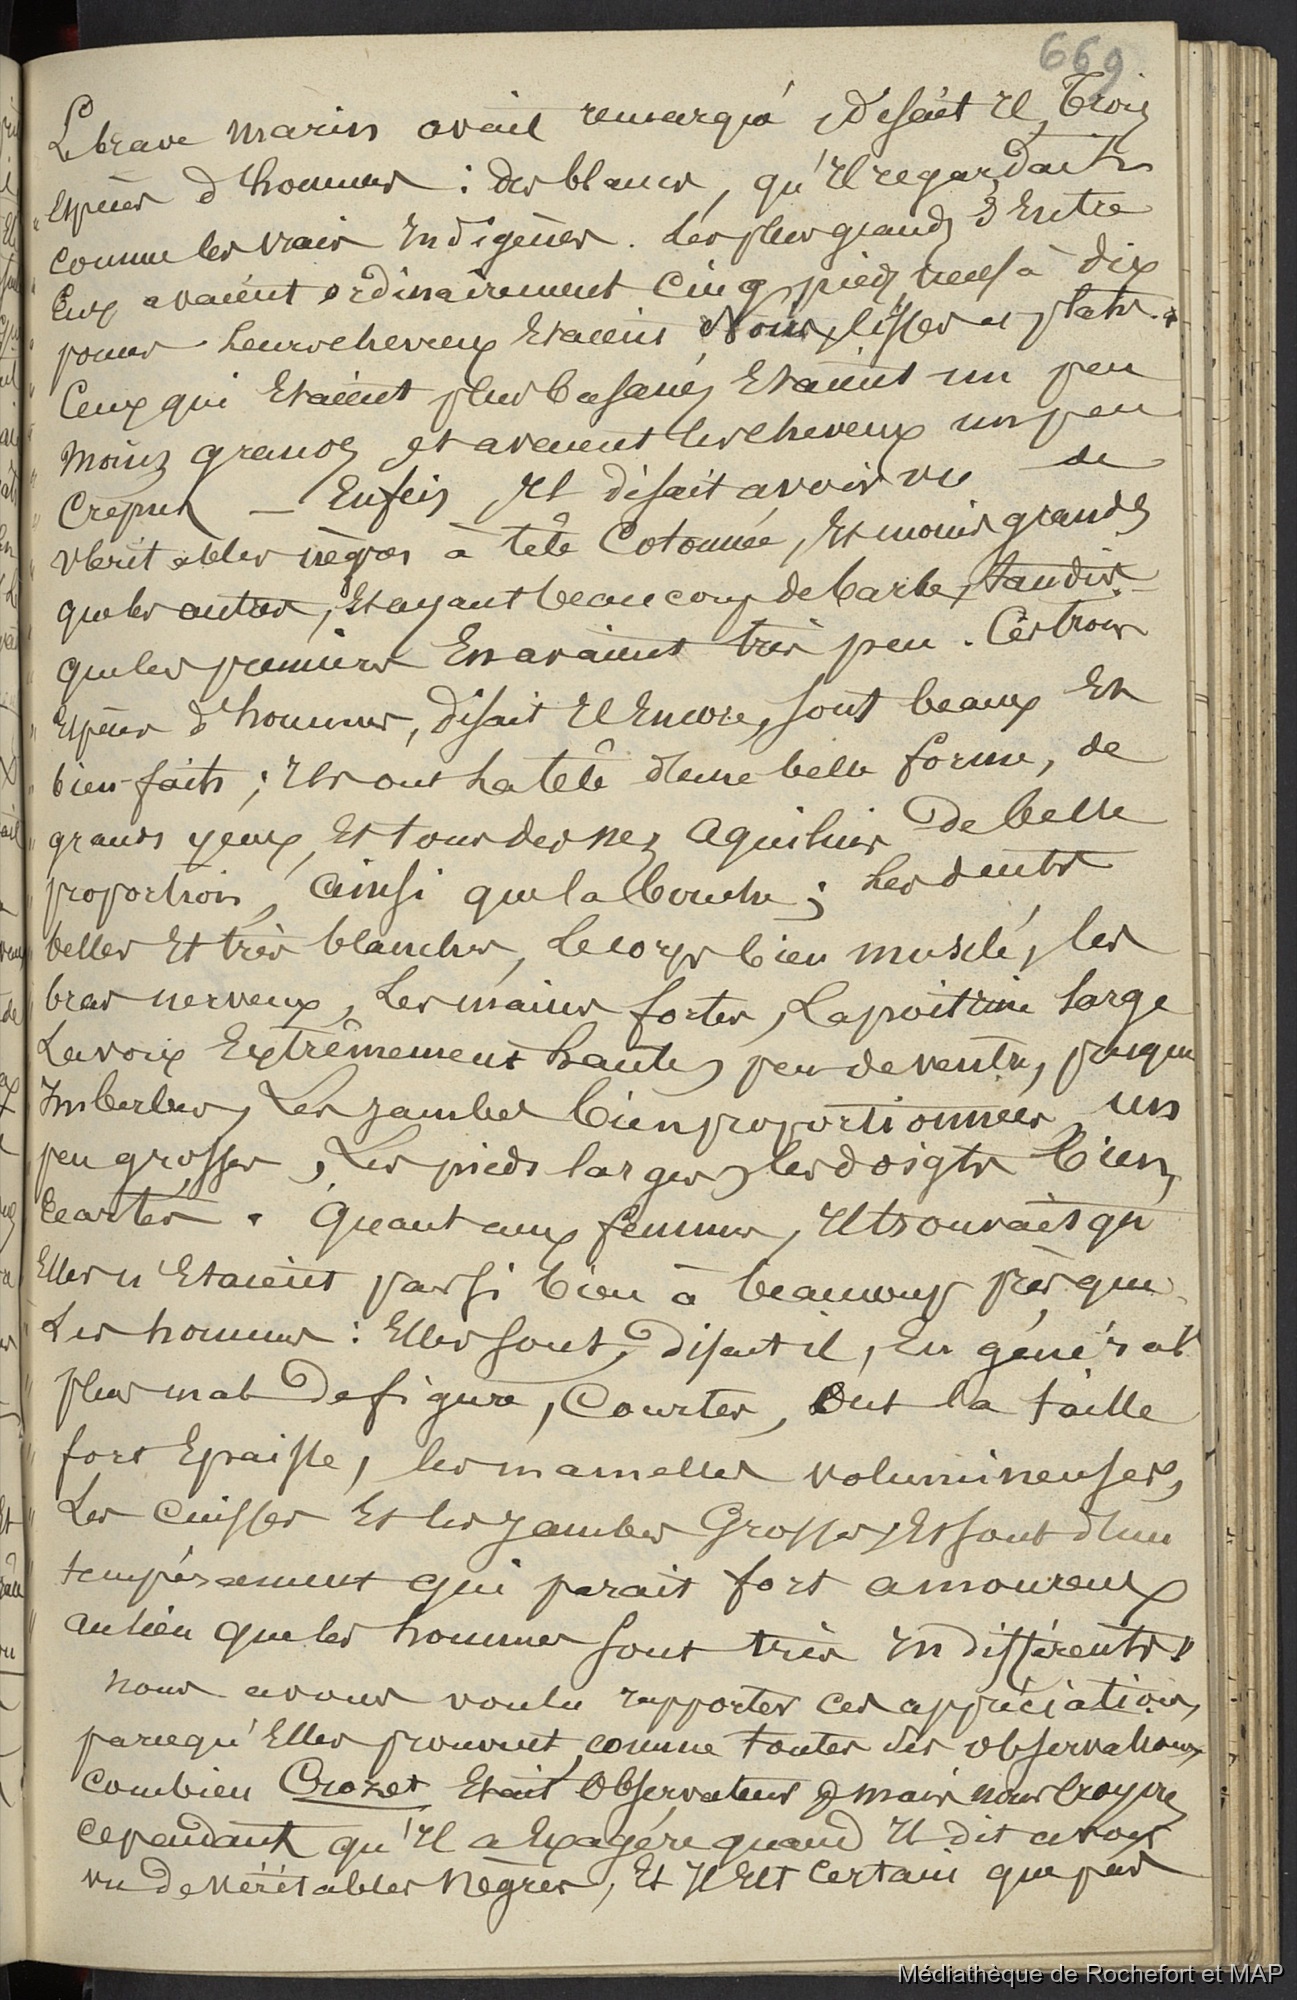 669
Le brave marin avait remarqué, disait il, trois
espèces d'hommes : des blancs, qu'il regardait
comme les vrais indigènes. Les plus grands d'entre
eux avaient ordinairement cinq pieds neuf à dix
pouces leurs cheveux etaient Noirs, lisses et plats.
Ceux qui Etaient plus basanés Etaient un peu
moins grands et avaient les cheveux un peu
Crépus — Enfin Il disait avoir vu de
véritables nègres à tête Cotonnée, Et moins grands
que les autres, Et ayant beaucoup de barbe, tandis
que les premiers En avaient très peu. Ces trois
Espèces d'hommes, disait Il Encore, sont beaux Et
bien-faits ; Ils ont la tête d'une belle forme, de
grands yeux, Et tous des nez aquilins de belle
proportion, ainsi que la bouche ; les dents
belles Et très blanches, le corps bien musclé, les
bras nerveux, les mains fortes, La poitrine large
La voix Extrêmement haute, peu de ventre, presque
Imberbes, Les jambes bien proportionnées, un
peu grosses, Les pieds larges, les doigts bien
Ecartés. Quant aux femmes, Il trouvait qu'
Elles n'Etaient pas si bien à beaucoup près que
Les hommes : Elles sont, disait il, En général
plus mal de figure, Courtes, Ont la taille
fort Epaisse, les mamelles volumineuses,
Les cuisses Et les jambes Grosses, Et sont d'un
tempérament qui parait fort amoureux
au lieu que les hommes sont très indifférents."
nous avons voulu rapporter ces appréciations,
parcequ'Elles prouvent, comme toutes ses observations
combien Crozet Etait Observateur, mais nous croyons
cependant qu'Il a Exagéré quand Il dit avoir
vu de véritables Nègres, Et Il Est certain que par
Médiathèque de Rochefort et MAP